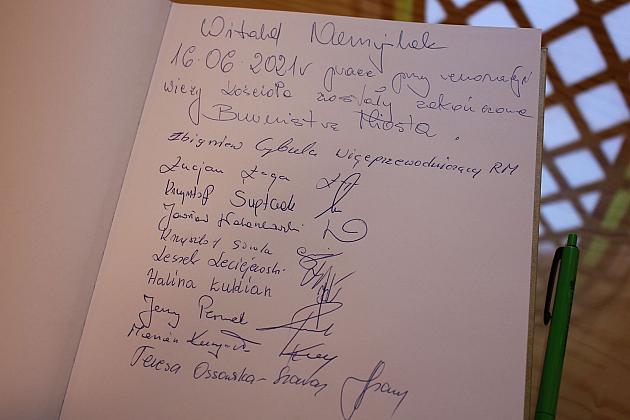 Witold
16.06.2021r prace przy renowacji
wieży kościoła zostały zakończone
Burmistrz Miasta.
Zbigniew Cybula Wiceprzewodniczący RM
Lucjan Żaga
Krzysztof Suptak
Krzysztof
Leszek Leciejewski
Halina Łukian
Jerzy
Marcin
Teresa Ossowska-Szara